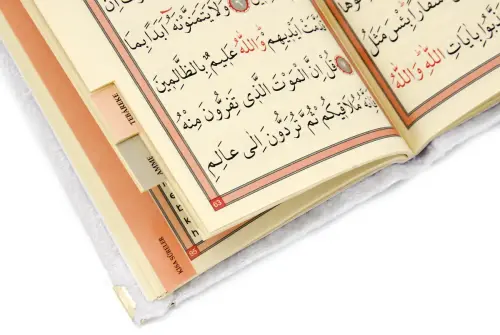 سْفَارًا بِئْسَ مَثَلُ
بُوا بِاٰيَاتِ اللّٰهِ وَاللّٰهُ
وَلَا يَتَمَنَّوْنَهُٓ اَبَدًا بِمَا
قَدَّمَتْ اَيْدٖيهِمْ وَاللّٰهُ عَلٖيمٌ بِالظَّالِمٖينَ
قُلْ اِنَّ الْمَوْتَ الَّذٖى تَفِرُّونَ مِنْهُ
فَاِنَّهُ مُلَاقٖيكُمْ ثُمَّ تُرَدُّونَ اِلٰى عَالِمِ
63
TEBAREKE
AMME
KISA SÛRELER